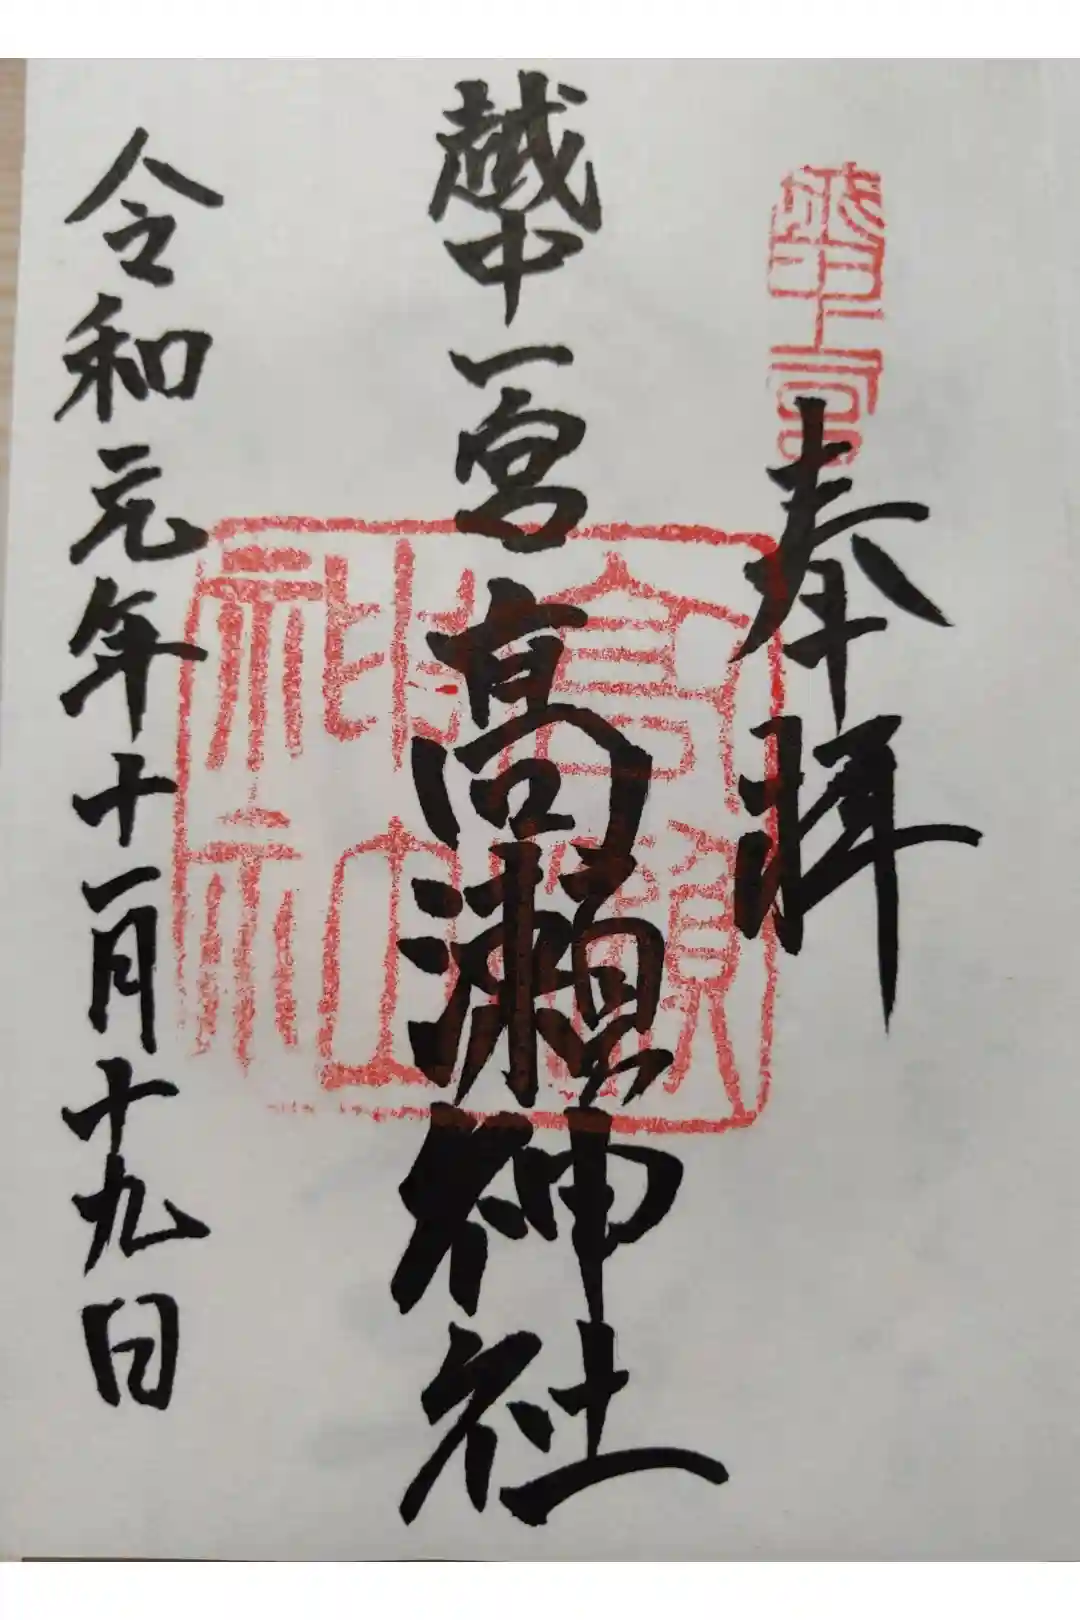 奉拝
越中一宮
越中一宮 高瀬神社
高瀬
神社
令和元年十一月十九日